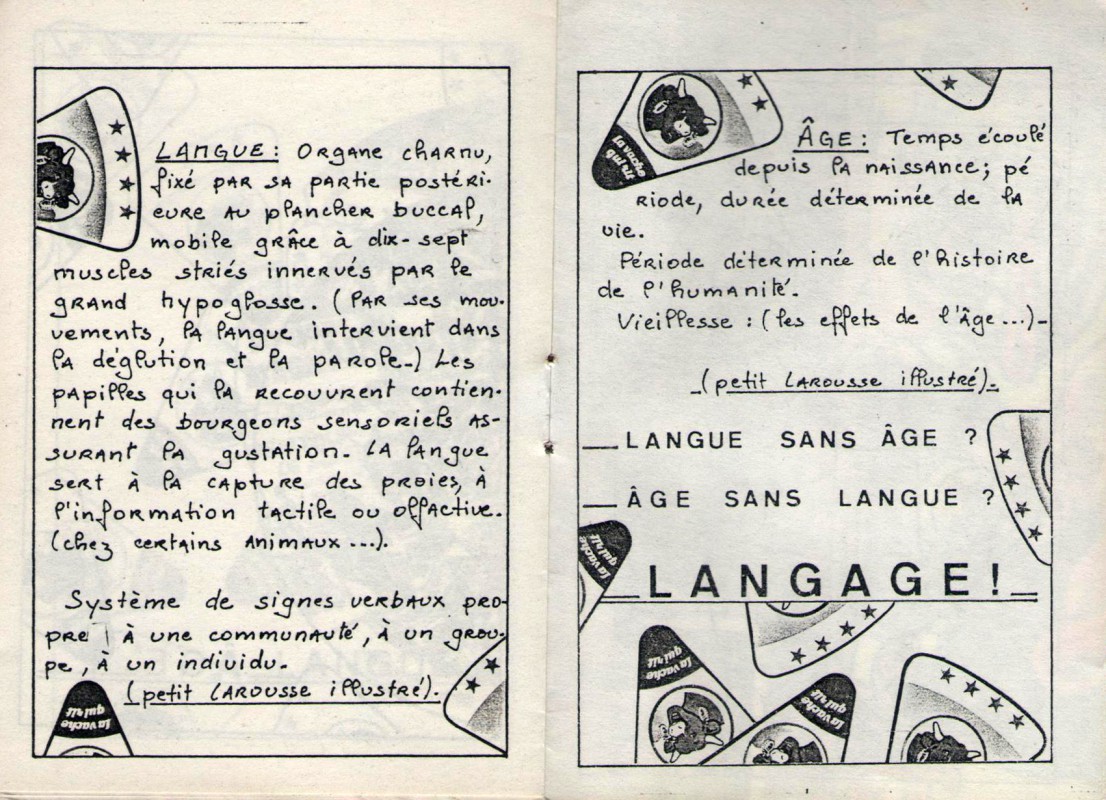 LANGUE : Organe charnu,
fixé par sa partie postéri-
eure au plancher buccal,
mobile grâce à dix-sept
muscles striés innervés par le
grand hypoglosse. (Par ses mou-
vements, la langue intervient dans
la déglution et la parole.) Les
papilles qui la recouvrent contien-
nent des bourgeons sensoriels as-
surant la gustation. La langue
sert à la capture des proies, à
l'information tactile ou olfactive.
(chez certains animaux ...).
Système de signes verbaux pro-
pre à une communauté, à un grou-
pe, à un individu.
(petit Larousse illustré).
la vache
qui rit
la vache
qui rit
ÂGE : Temps écoulé
depuis la naissance ; pé
riode, durée déterminée de la
vie.
Période déterminée de l'histoire
de l'humanité.
Vieillesse : (les effets de l'âge ...)_
_(petit Larousse illustré)_
__LANGUE SANS ÂGE ?
__ÂGE SANS LANGUE ?
la vache
qui rit
__LANGAGE!__
la vache
qui rit
la vache
qui rit